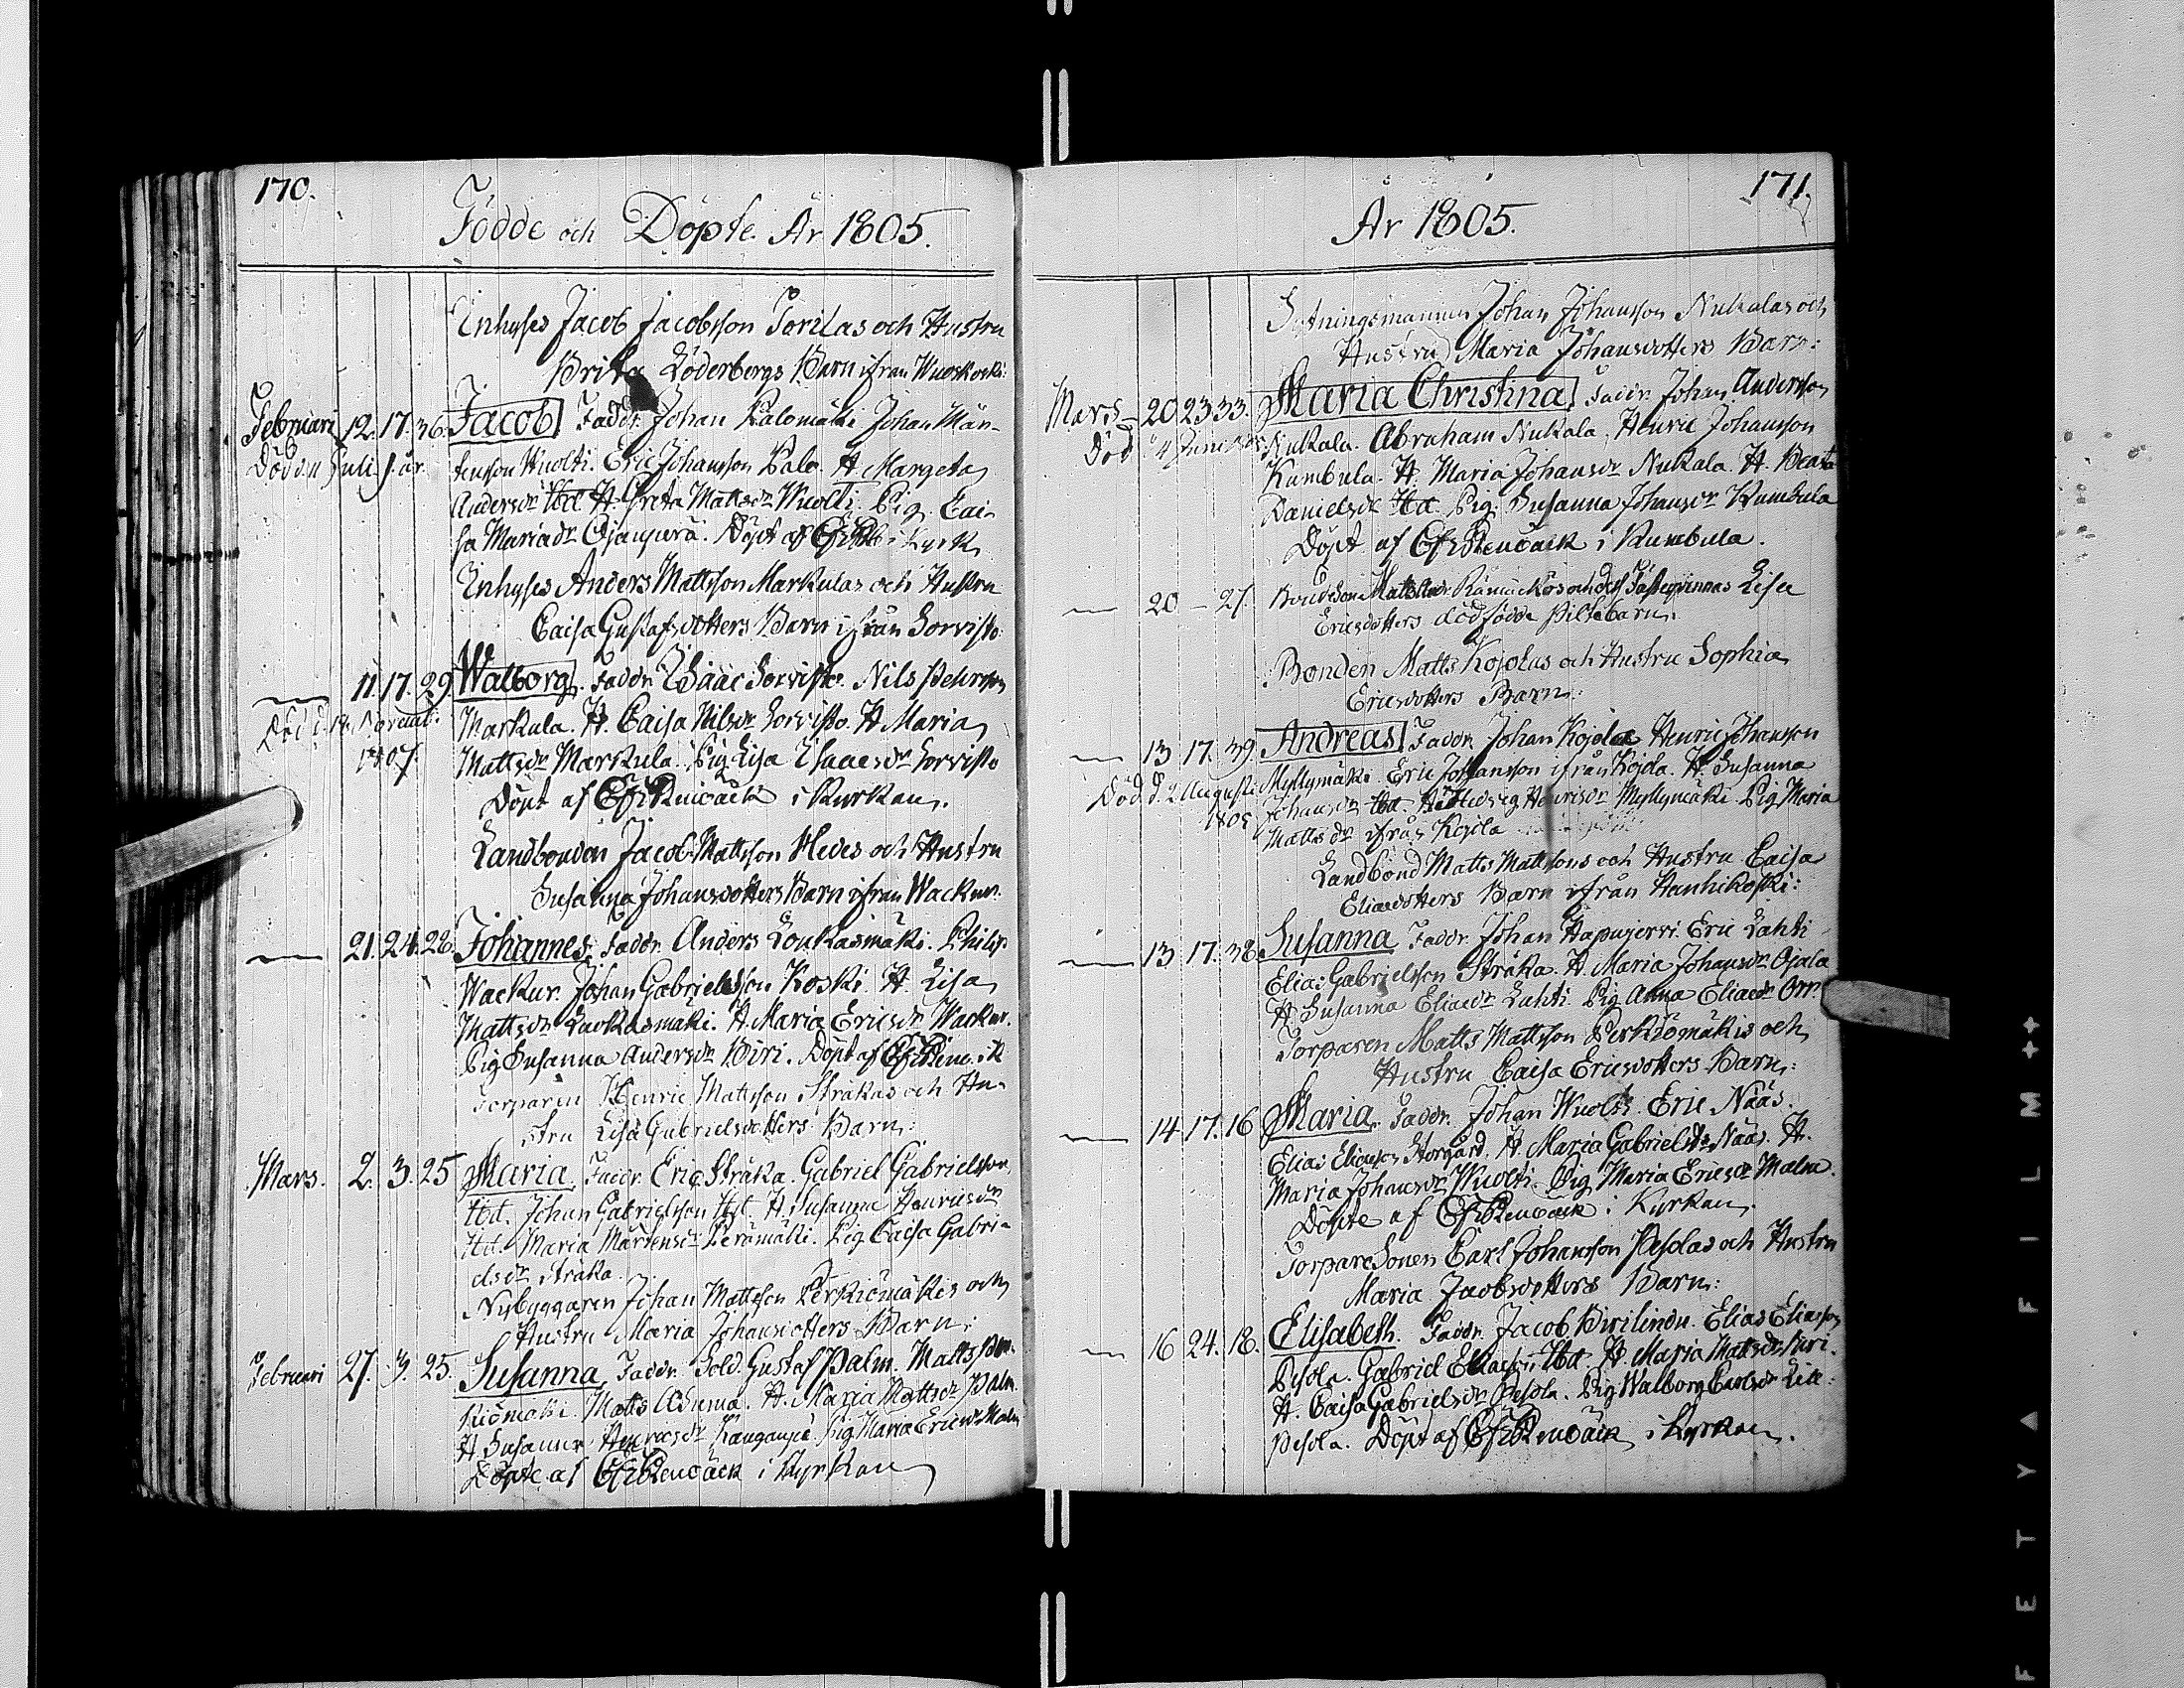 170.
Födde och Döpte År 1805.
Inhyses Jacob Jacobsson Torilas och Hustru
Brita Söderbergs Barn ifrån Wuoskoski:
Februari 12. 17. 36. Jacob Faddr. Johan Palomäki Johan Mår-
Död i Juli s. år. tensson Wuolti. Eric Johansson Palo. H. Margeta
Andersdr Ibd H. Greta Mattsdr Wuolti. Pig. Cai-
sa Mariadr Ojanperä. Döpt af i Kyrk
Inhyses Anders Mattsson Markulas och Hustru
Caisa Gustafsdotters Barn ifrån Sorvisto:
11. 17. 29. Walborg. Faddr. Isaac Sorvisto. Nils Pehrsson
Död d. 14 Novemb: Markula. H. Caisa Nilsdr Sorvisto. H. Maria
1807 Mattsdr Markula. Pig Lisa Isaacsdr Sorvisto
Döpt af i Kyrkan.
Landbonden Jacob Mattsson Hedes och Hustru
Susanna Johansdotters Barn ifrån Wackur.
21. 24. 28. Johannes. Faddr. Anders Loukasmäki. Philip
Wackur. Johan Gabrielsson Koski. H. Lisa
Mattsdr Loukasmäki. H. Maria Ericsdr Wackur.
Pig Susanna Andersdr Biri. Döpt af i K
Torparen Henric Mattsson Stråkas och Hu-
stru Lisa Gabrielsdotters Barn:
Mars. 2. 3. 25 Maria. Faddr. Eric Stråka. Gabriel Gabrielsson
Ibd. Johan Gabrielsson Ibd. H. Susanna Henricsdr
Ibd. Maria Mårtensdr Perämäki. Pig Caisa Gabri-
elsdr Stråka.
Nybyggaren Johan Mattsson Perkiömäkis och
Hustru Maria Johansdotters Barn:
Februari 27. 25. Susanna. Faddr. Sold. Gustaf Palm. Matts Per-
kiömäki. Matts H. Maria Mattsdr Palm.
H. Susanna Henricsdr Kanganpä. Pig Maria Ericsdr Malm
Döpte af i Kyrkan
171.
År 1805.
Sytningsmannen Johan Johansson Nukalas och
Hustru Maria Johansdotters Barn:
Mars 20 23 33. Maria Christina. Faddr. Johan Andersson
Död 4 Juni Nukala. Abraham Nukala. Henric Johansson
Kumbula. H. Maria Johansdr Nukala. H. Beata
Danielsdr Ibd. Pig. Susanna Johansdr Kumbula
Döpt af i Kumbula.
20 - 27. Bondeson Lisa
Ericsdotters dödfödda Piltebarn.
Bonden Matts Kojolas och Hustru Sophia
Ericsdotters Barn:
13 17. 39. Andreas. Faddr. Johan Kojola Henric Johansson
Död d. 2 Augusti Myllymäki. Eric Johansson ifrån Kojola. H. Susanna
1805 Johansdr Ibd. H. Hedvig Henricsdr Myllymäki. Pig Maria
Mattsdr ifrån Kojola
Landbond Matts Mattsons och Hustru Caisa
Eliaedotters Barn ifrån Hanhikoski:
13 17. 38. Susanna Faddr. Johan Hapujerri. Eric Lahti
Elias Gabrielsson Stråka. H. Maria Johansdr Ojala
H. Susanna Eliaedr Lahti. Pig Anna Eliaedr Orr.
Torparen Matts Mattsson Perkiömäkis och
Hustru Caisa Ericsdotters Barn:
14. 17. 16 Maria. Faddr. Johan Wuolti. Eric Nääs.
Elias Eliasson Storgård. H. Maria Gabrielsdr Nääs. H.
Maria Johansdr Wuolti. Pig Maria Ericsdr Malm.
Döpte af i Kyrkan.
Torpare Sonen Carl Johansson Pesolas och Hustru
Maria Jacobsdotters Barn:
16 24. 18. Elisabeth. Faddr. Jacob Elias Eliasson
Pesola. Gabriel Eliasson Ibd. H. Maria Mattsdr
H. Caisa Gabrielsdr Pesola. Pig Walborg Carlsdr Lill:
Pesola. Döpt af i Kyrkan.
F E T Y ▲ F I L M ++